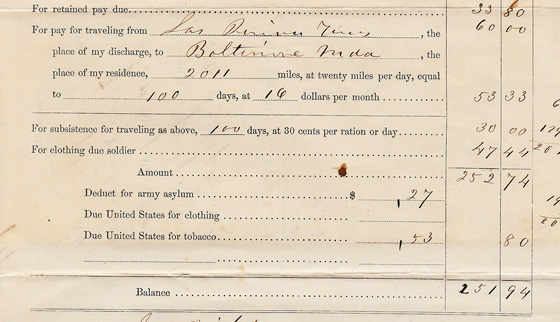 For retained pay due 33 80
For pay for traveling from Las , the 60 00
place of my discharge, to Baltimore Mda , the
place of my residence, 2011 miles, at twenty miles per day, equal
to 100 days, at 16 dollars per month 53 33
For subsistence for traveling as above, 100 days, at 30 cents per ration or day 30 00
For clothing due soldier 47 44
Amount 252 74
Deduct for army asylum $ ,27
Due United States for clothing
Due United States for tobacco ,53 80
Balance 251 94